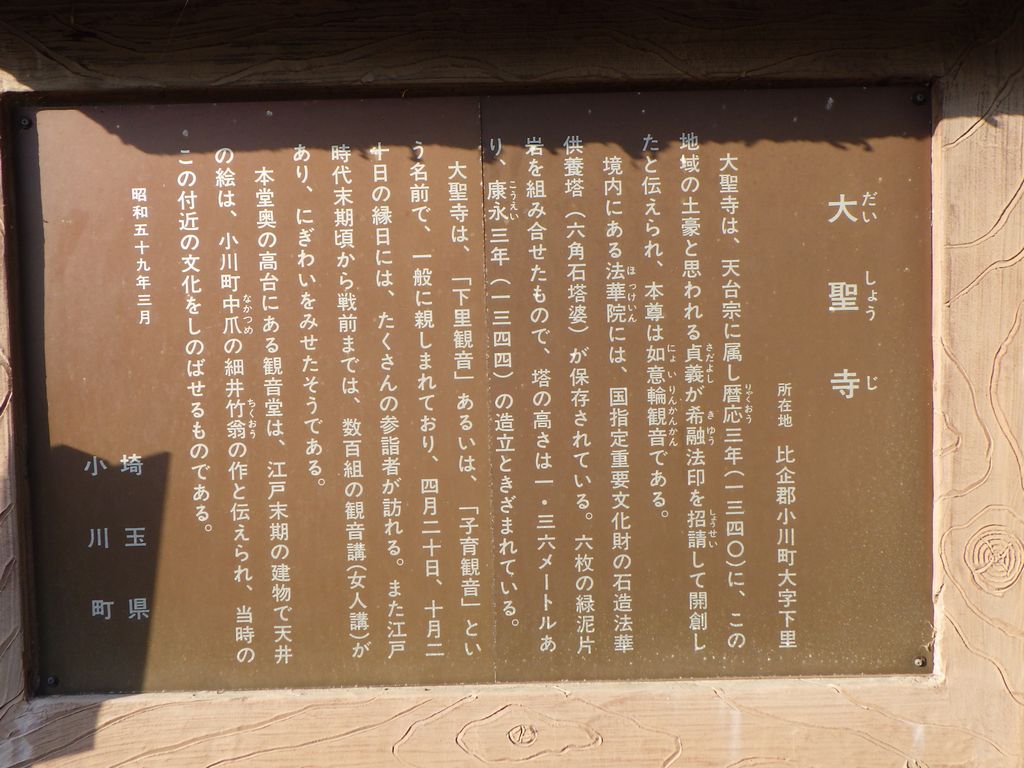 大聖寺
だいしょうじ
所在地 比企郡小川町大字下里
大聖寺は、天台宗に属し暦応三年(一三四〇)に、この
りゃくおう
地域の土豪と思われる貞義が希融法印を招請して開創し
さだよし きゆう しょうせい
たと伝えられ、本尊は如意輪観音である。
にょいりんかんかん
境内にある法華院には、国指定重要文化財の石造法華
ほっけいん
供養塔(六角石塔婆)が保存されている。六枚の緑泥片
岩を組み合せたもので、塔の高さは一・三六メートルあ
り、康永三年(一三四四)の造立ときざまれている。
こうえい
大聖寺は、「下里観音」あるいは、「子育観音」とい
う名前で、一般に親しまれており、四月二十日、十月二
十日の縁日には、たくさんの参詣者が訪れる。また江戸
時代末期頃から戦前までは、数百組の観音講(女人講)が
あり、にぎわいをみせたそうである。
本堂奥の高台にある観音堂は、江戸末期の建物で天井
の絵は、小川町中爪の細井竹翁の作と伝えられ、当時の
なかつめ ちくおう
この付近の文化をしのばせるものである。
昭和五十九年三月
埼玉県
小川町